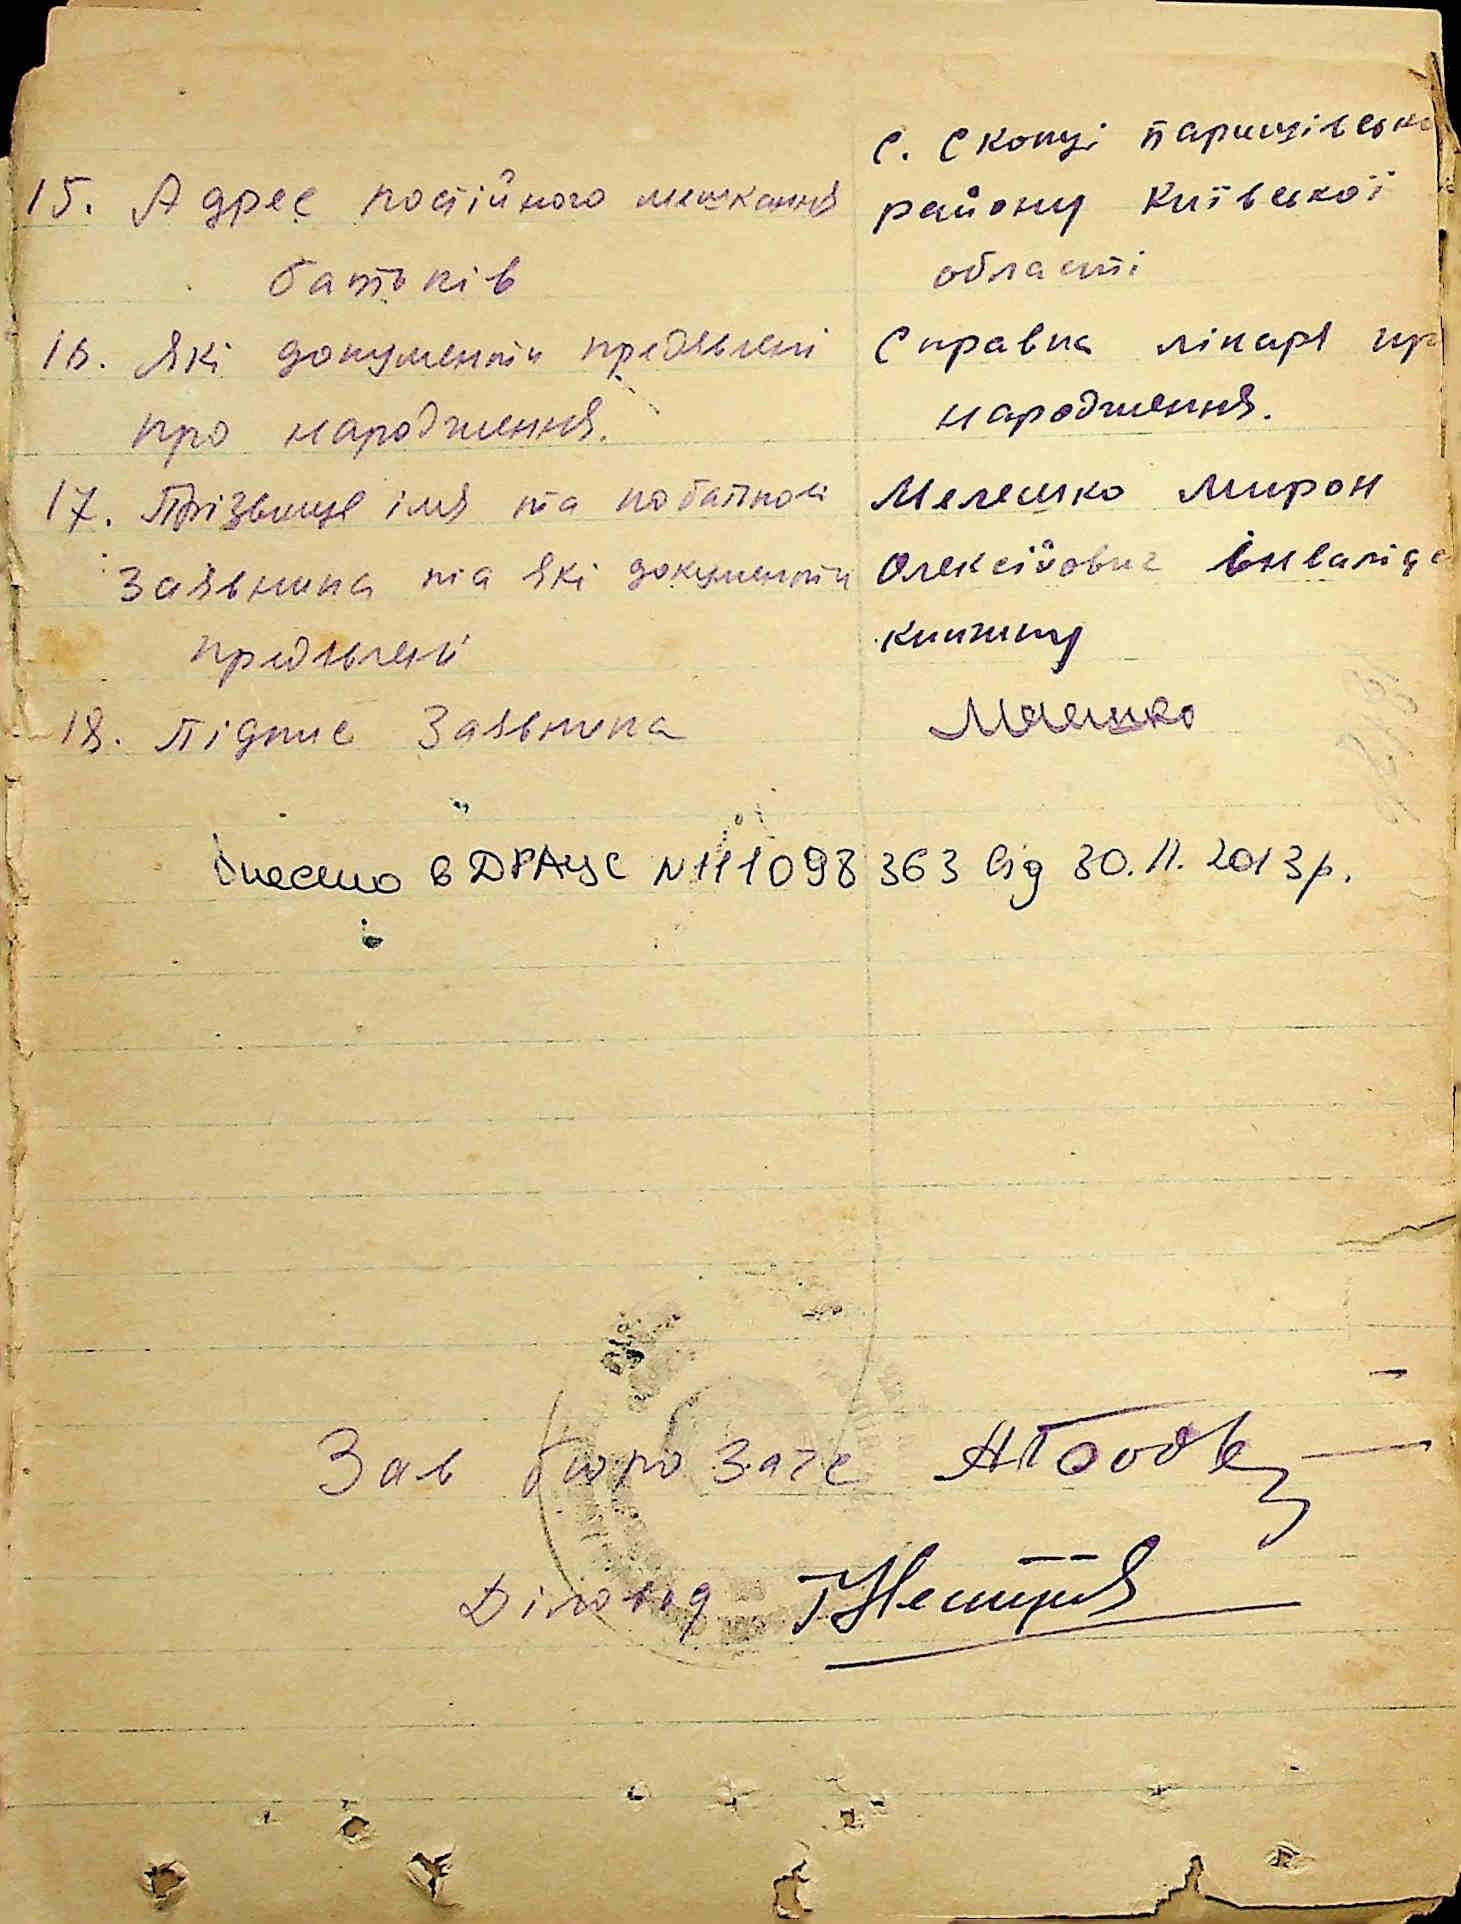 с. Скопці Баришівсько
15. Адрес постійного мешкання
району Київської
батьків
області
16. Які документи предявлені
Справка лікаря про
про народження.
народження.
17. Прізвище імя та побатькові
Мелешко Мирон
Заявника та які документи
Олексійович інваліди
предявлені
книжку
18. Підпис Заявника
Мелешко
Внесено в ДРАЦС №11098363 від 30.11.2013р.
Зав бюро Загс
Діловод